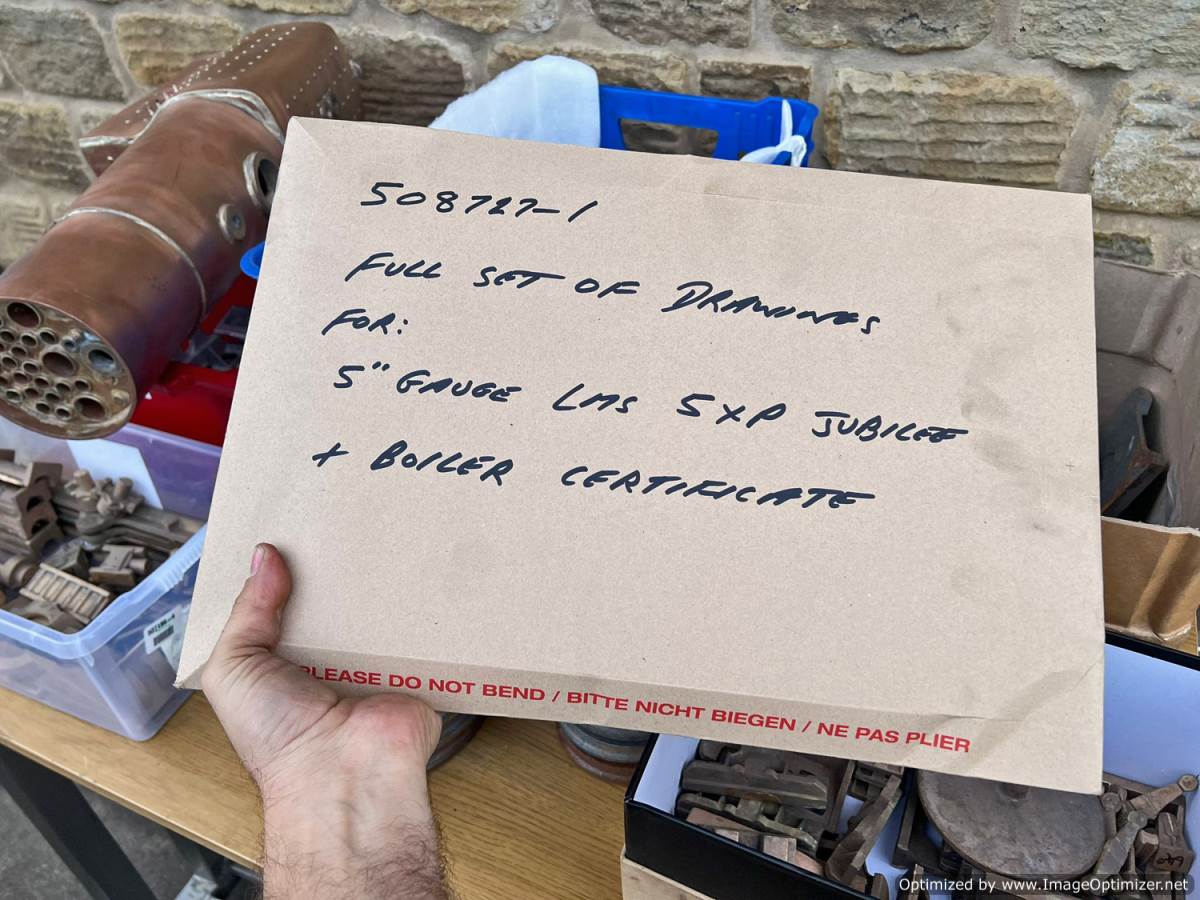 508727-1
FULL SET OF DRAWINGS
FOR:
5" GAUGE LMS 5XP JUBILEE
+ BOILER CERTIFICATE
PLEASE DO NOT BEND / BITTE NICHT BIEGEN / NE PAS PLIER
Optimized by www.ImageOptimizer.net